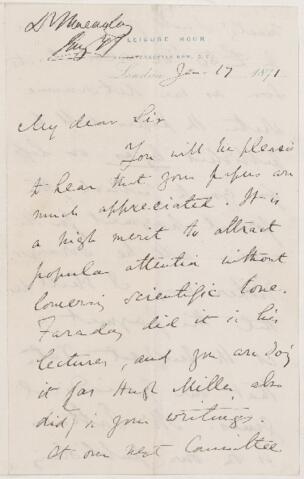 Dr Macaulay
Aug 77
LEISURE HOUR
PATERNOSTER ROW, E.C.
London Jan 17 1871
My dear Sir
You will be pleased
to hear that your papers are
much appreciated. It is
a high merit to attract
popular attention without
lowering scientific tone.
Faraday did it in his
lectures, and you are doing
it (as Hugh Miller also
did) in your writings.
At our next Committee